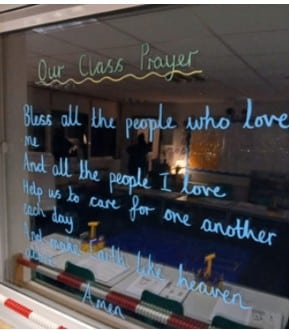 Our Class Prayer
Bless all the people who love
me
And all the people I love
Help us to care for one another
each day
And make Earth like heaven
Amen